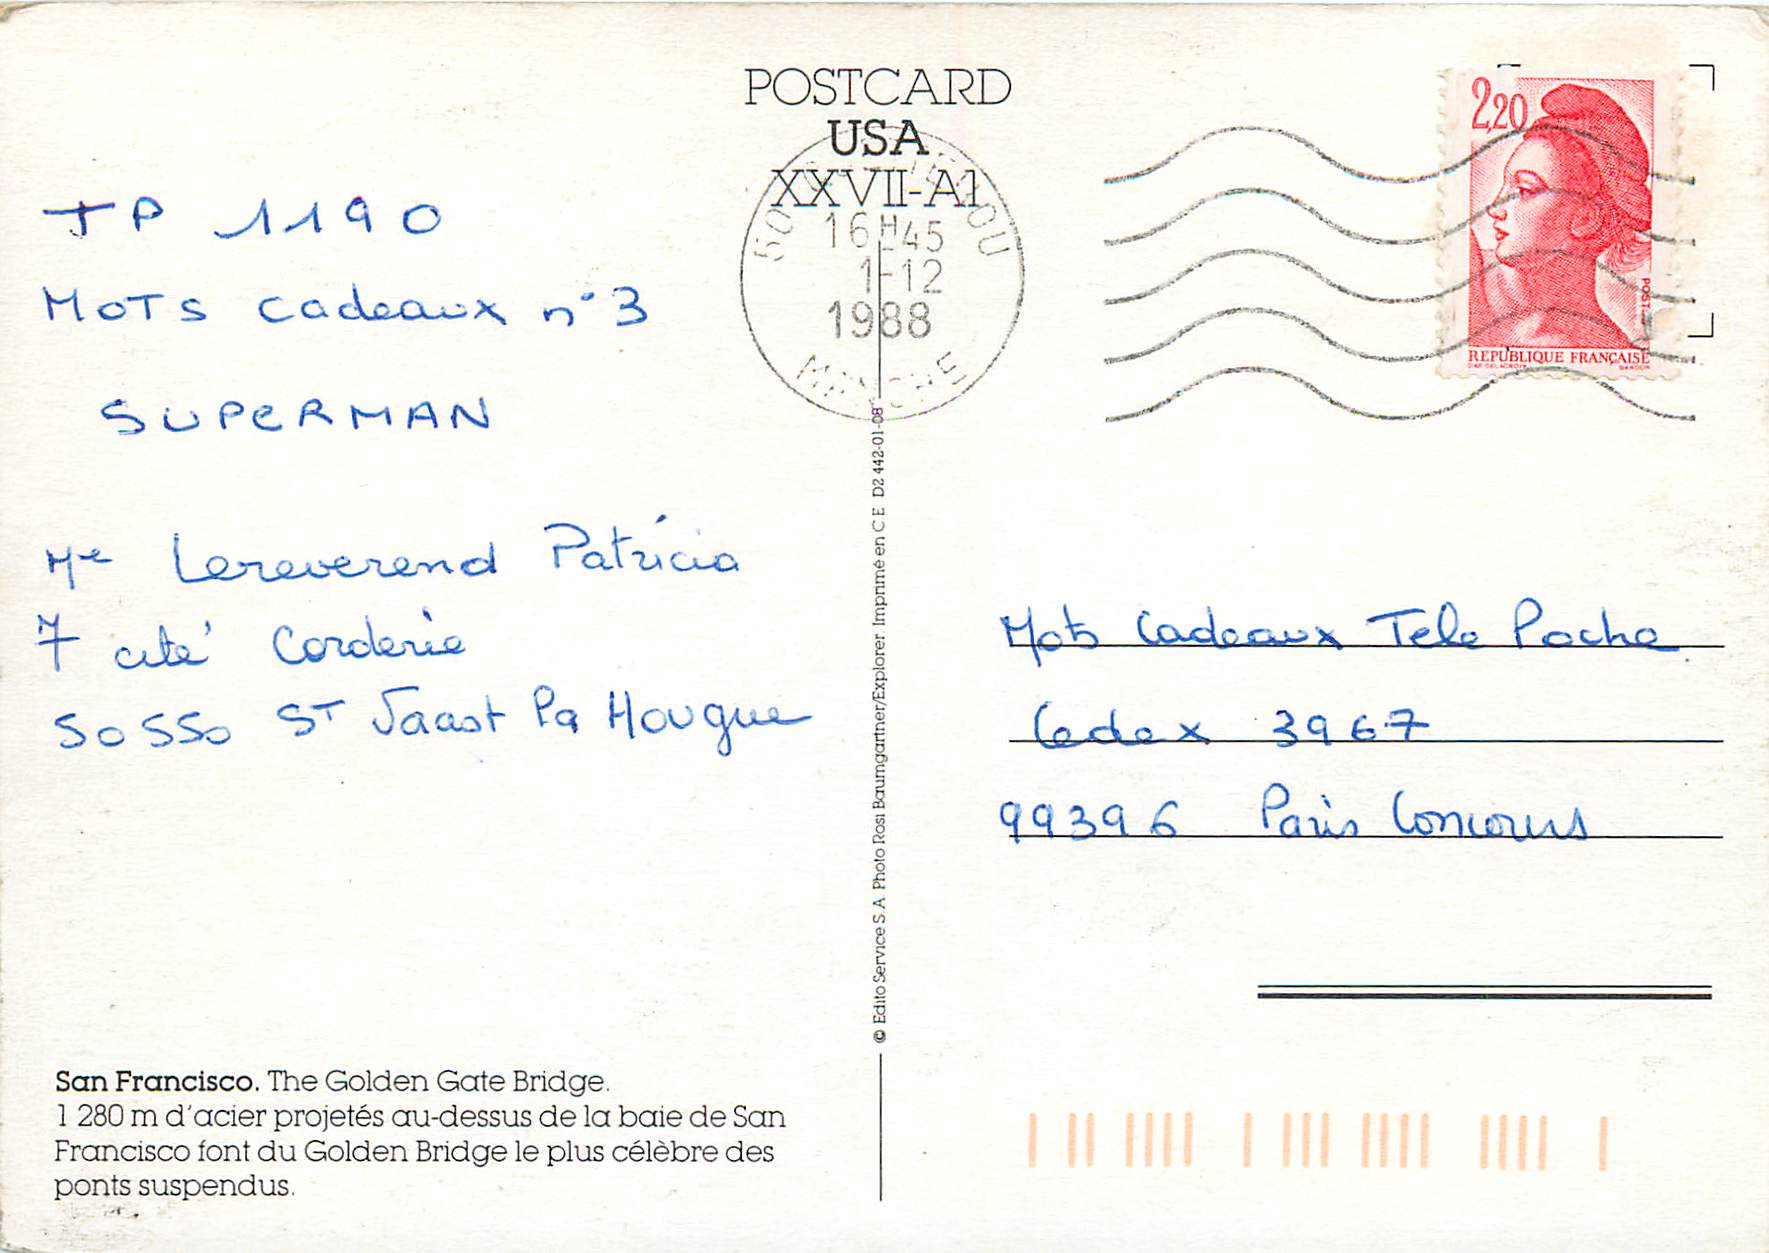 POSTCARD
USA
XXVII-A1
16H45
1-12
1988
MANCHE
2,20
POSTES
REPUBLIQUE FRANÇAISE
D'AP. DELACROIX GANDON
TP 1190
MOTS cadeaux n°3
SUPERMAN
Me Lereverend Patricia
7 cité Corderie
50550 ST Vaast la Hougue
© Edito Service S.A Photo Rosi Baumgartner/Explorer Imprimé en C E D2 442-01-08
Mots Cadeaux Tele Poche
Cedex 3967
99396 Paris Concours
San Francisco. The Golden Gate Bridge.
1 280 m d'acier projetés au-dessus de la baie de San
Francisco font du Golden Bridge le plus célèbre des
ponts suspendus.